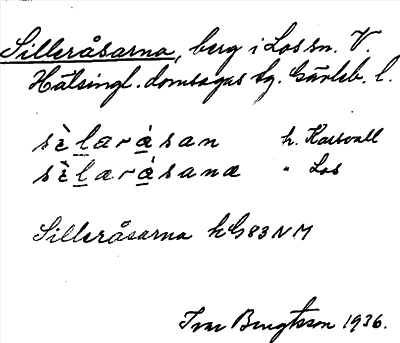 Silleråsarna, berg i Los sn. V.
Hälsingl. domsagas tg. Gävleb. l.
sèlaràsan h. Karsvall
sèlæràsanæ " Los
Silleråsarna hG83NM
Ivar Bengtsson 1936.